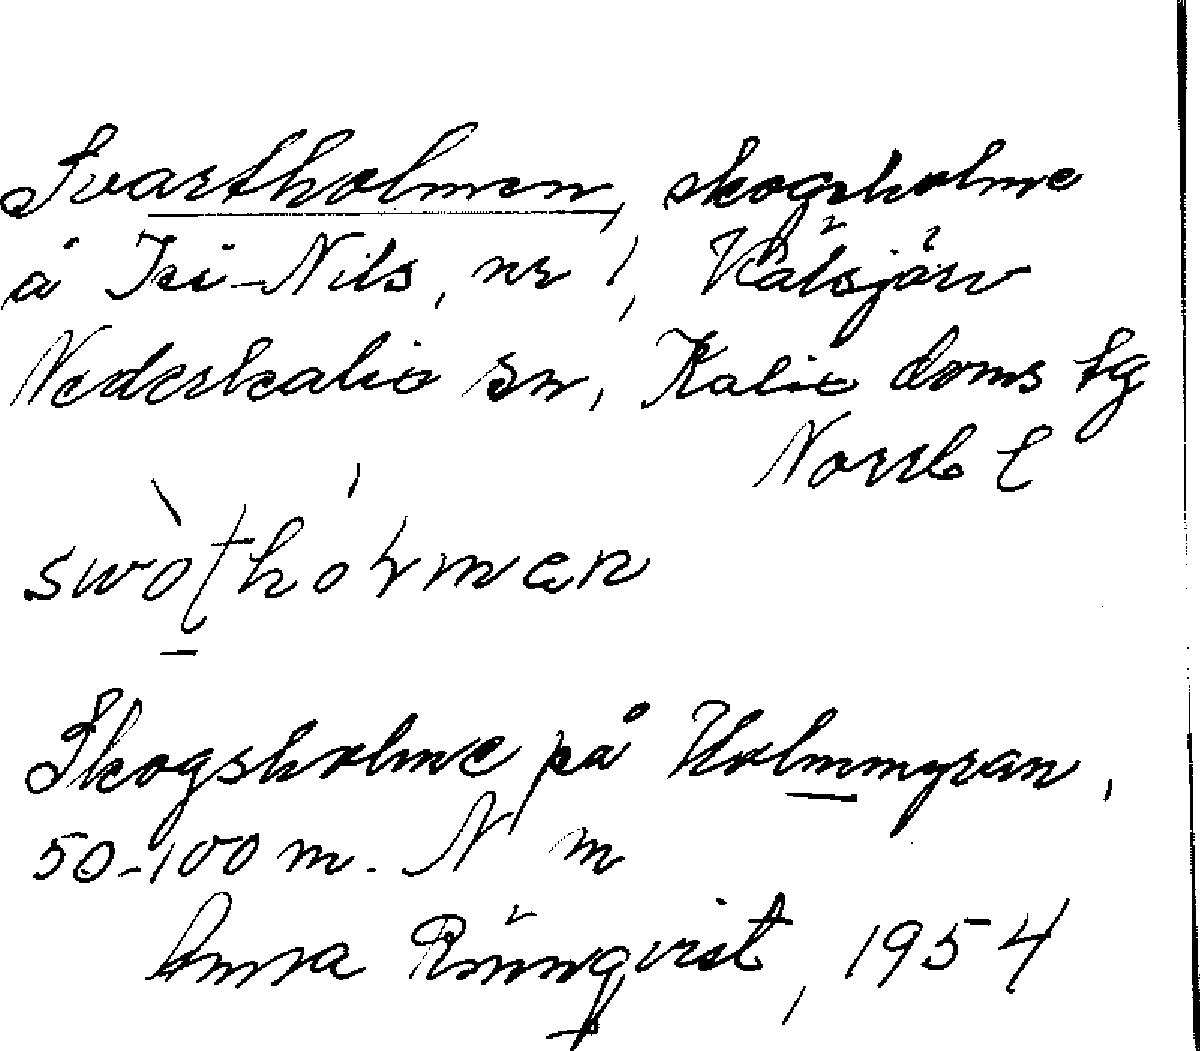 Svartholmen, skogsholme
å Isi-Nils, nr 1, Välsjärv
Nederkalix sn, Kalix doms tg
Norrb l
Skogsholme på Holmmyran,
50-100 m. N m
Anna Rönnqvist, 1954